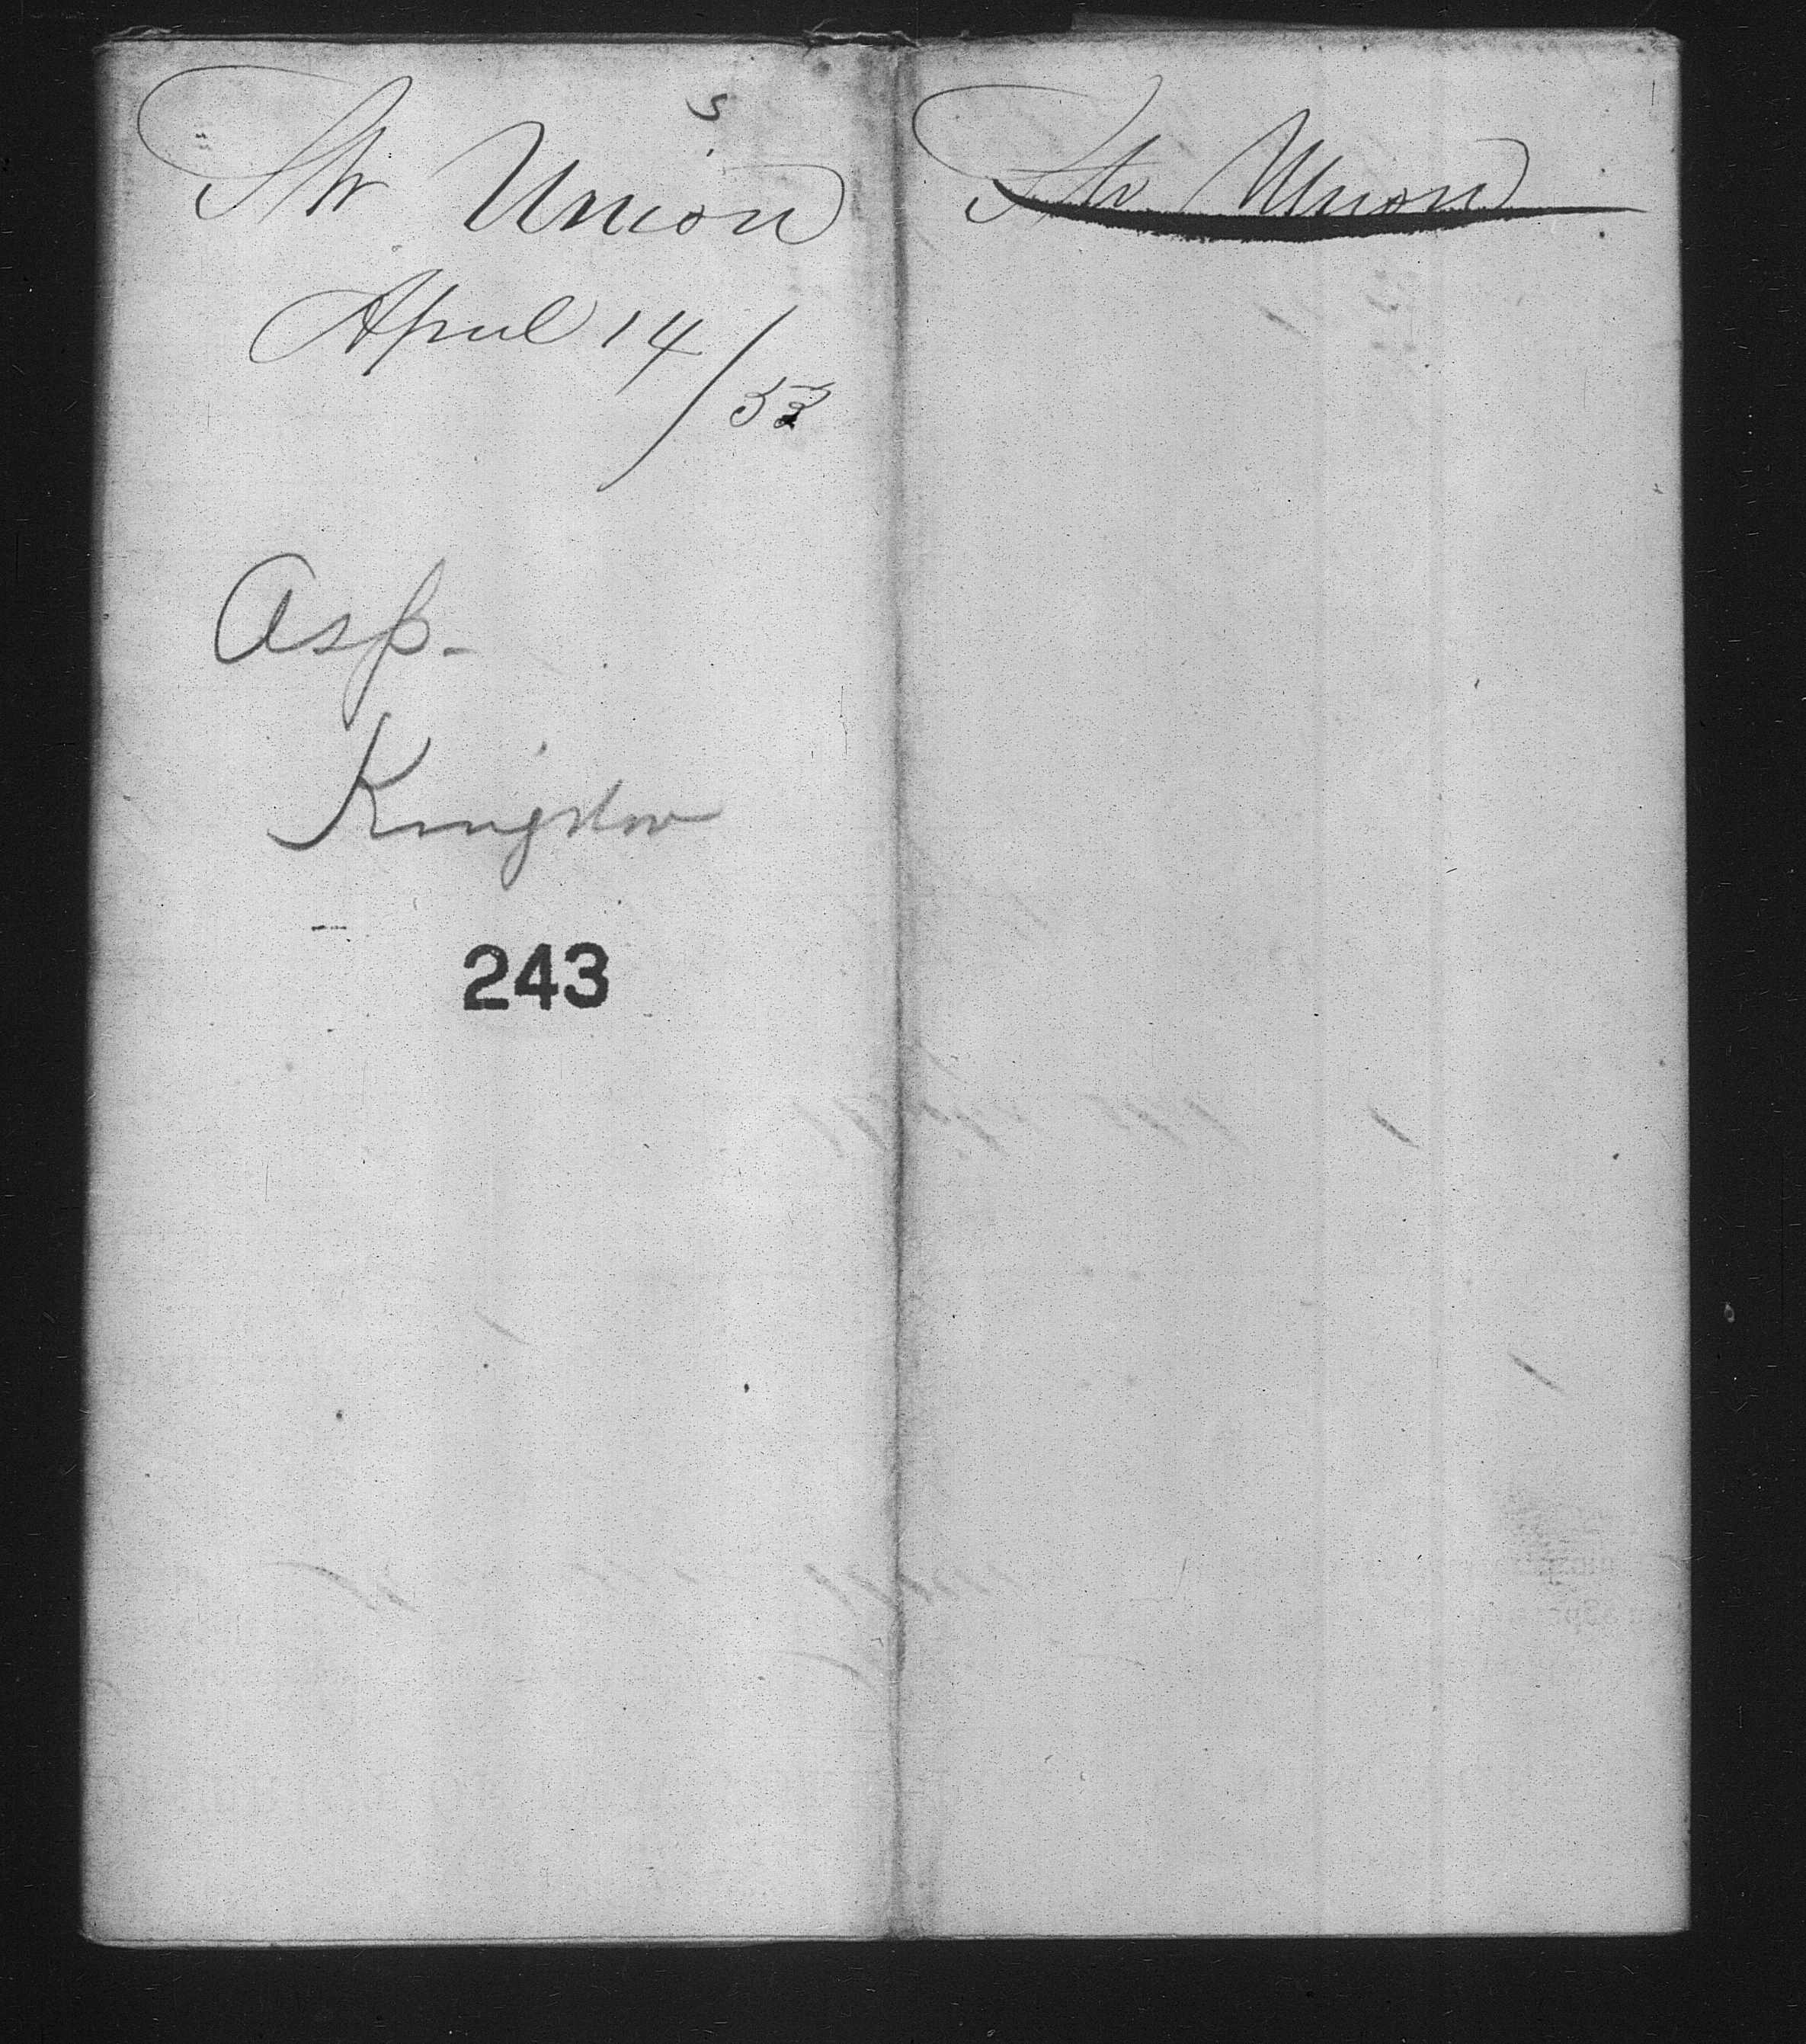 s
Str Union
April 14/53
Asp.
Kingston
243
Str Union